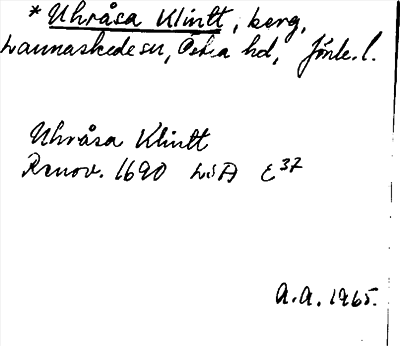 * Uhråsa Klintt, berg,
Lannaskede sn, Östra hd, Jönk. l.
Uhråsa Klintt
Renov. 1690 LSA E37
A.A. 1965.